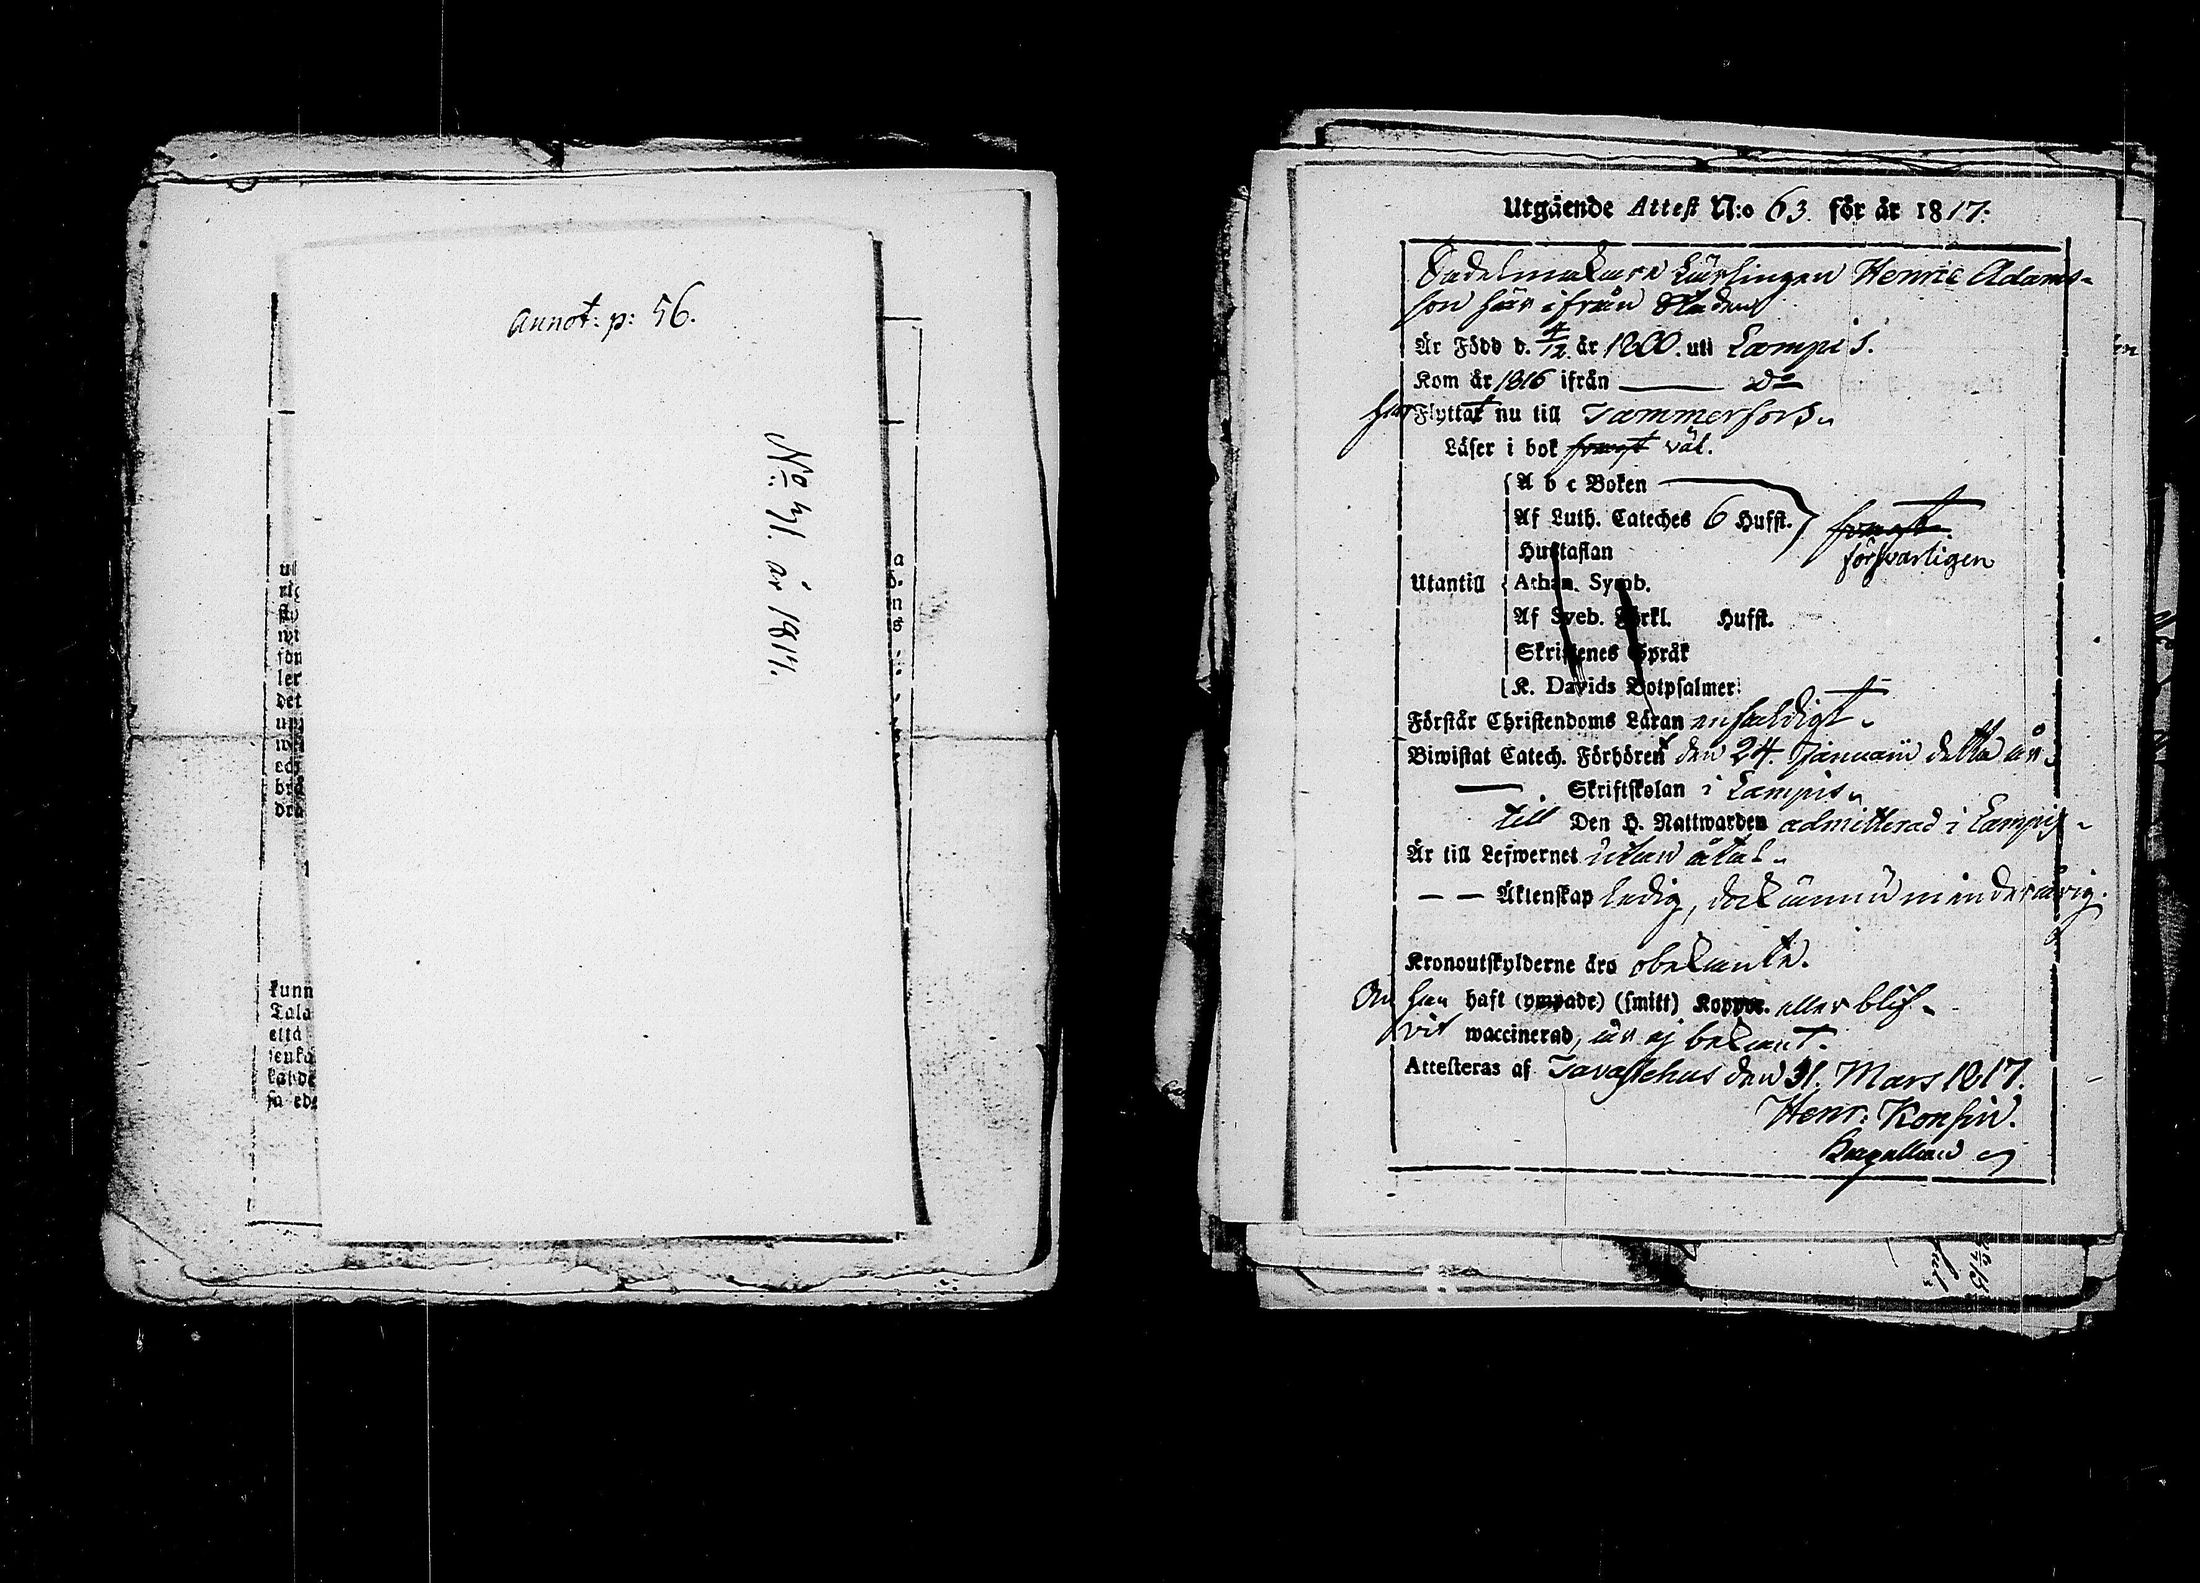 Annot: p: 56.
No 41. år 1817.
Utgående Attest N:o 63. för år 1817:
Sadelmakare Lärlingen Henric Adams-
son här ifrån Staden
Är Född d. 4/12. år 1800. uti Lampis.
Kom år 1816 ifrån —— Do
har Flyttat nu till Tammerfors.
Läser i bok väl.
A b c Boken
Af Luth. Cateches 6 Hufst.
försvarligen
Hustaflan
Utantill
Athan. Symb.
Af Sveb. Förkl. Hufst.
Skriftenes Språk
K. Davids Botpsalmer
Förstår Christendoms Läran enfaldigt.
Biwistat Catech. Förhöret den 24. Januarii detta år.
—— Skriftskolan i Lampis.
till Den H. Nattwarden admitterad i Lampis.
Är till Lefwernet utan åtal.
— — Äktenskap ledig, dock ännu minderårig.
Kronoutskylderne äro obekante.
Om han haft (ympade) (smitt) Koppor. eller blif-
vit waccinerad, är ej bekant.
Attesteras af Tavastehus den 31. Mars 1817.
Henr: Konsin.